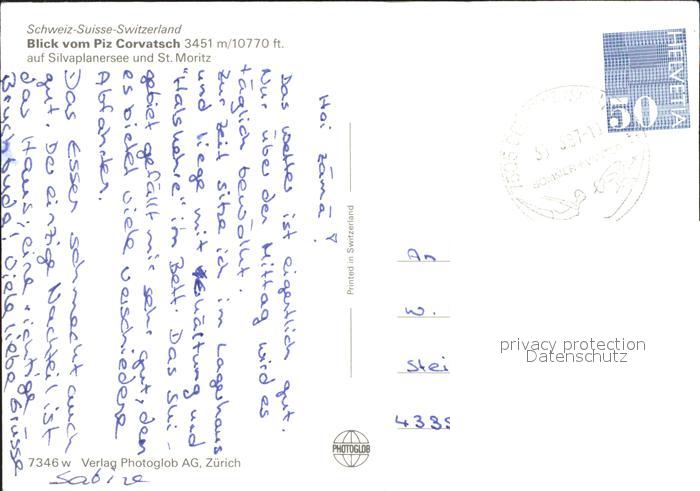 Schweiz-Suisse-Switzerland
Blick vom Piz Corvatsch 3451 m/10770 ft.
auf Silvaplanersee und St. Moritz
Hoi zämä!
Das wetter ist eigentlich gut.
Nur über den Mittag wird es
täglich bewölkt.
Zur Zeit sitze ich im Lagerhaus
und liege mit Erkältung und
"Halswehre" im Bett. Das Ski-
gebiet gefällt mir sehr gut, den
es bietet viele verschiedene
Abfahrten.
Das Essen schmeckt auch
gut. Der einzige Nachteil ist
das Haus; eine richtige
Bruchbude! Viele liebe Grüsse
Sabine
Printed in Switzerland
HELVETIA
50
An
W.
Stei
privacy protection
Datenschutz
PHOTOGLOB
7346 w Verlag Photoglob AG, Zürich